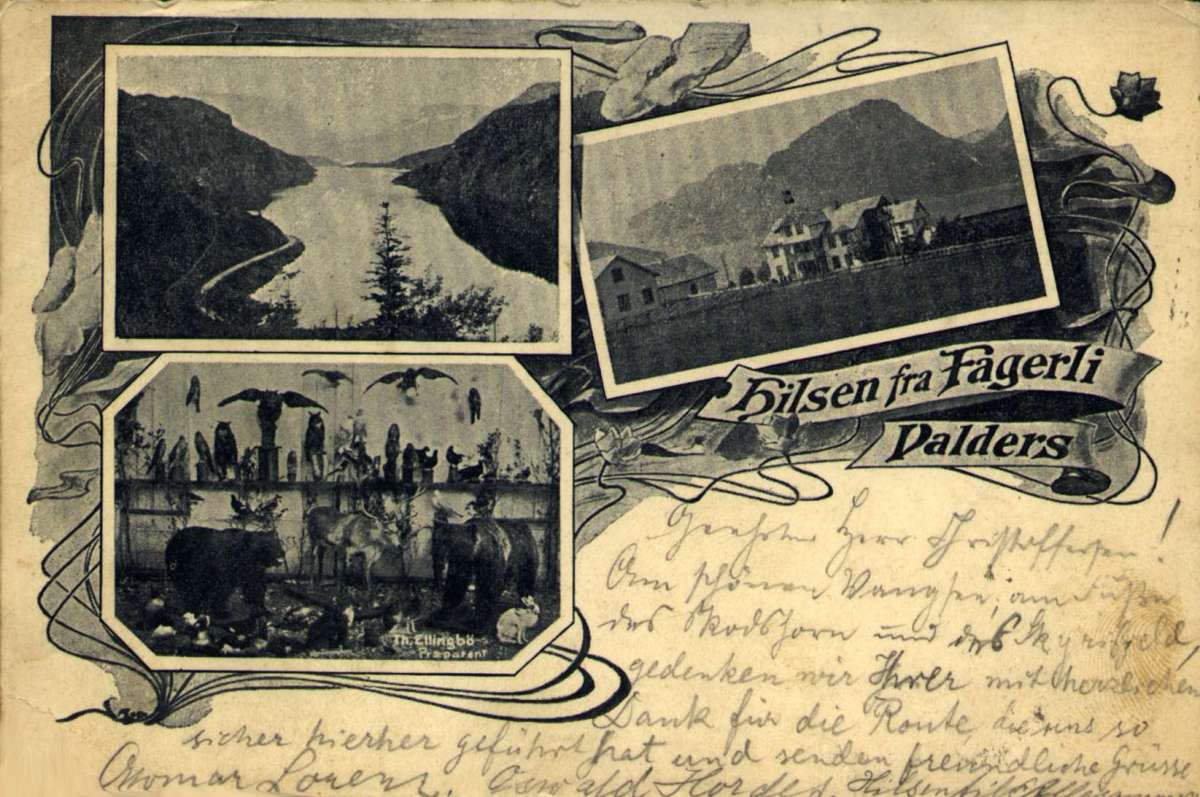 Hilsen fra Fagerli
Valders
Th. Ellingbö
Præparent
Geehrter Herr Christoffersen!
Am schönen Vangsee, am Fuße
des Skodshorn und des Skyrifjeld,
gedenken wir Ihrer mit herzlichen
Dank für die Route, die uns so
sicher hierher geführt hat und senden freundliche Grüsse
Ottomar Lorenz. Oswald Hordes, Hilsen